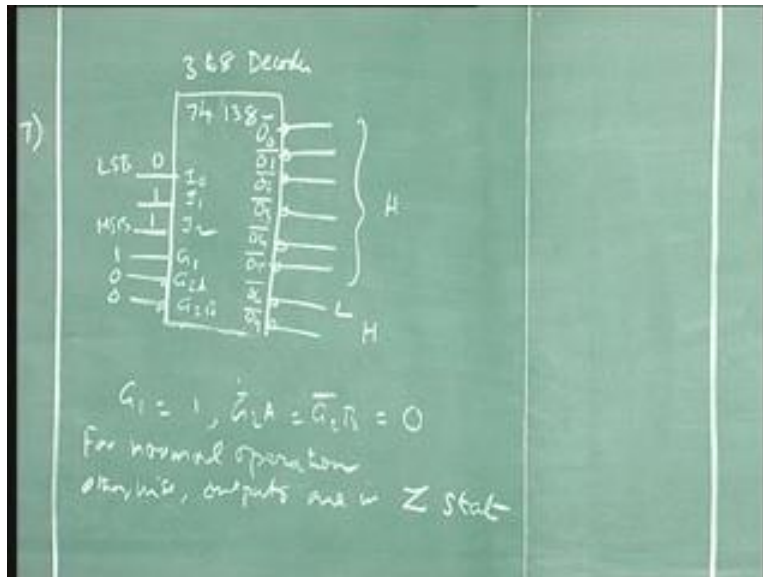 3 to 8 Decoder
7)
74 138
LSB 0 I₀
1 I₁
MSB 1 I₂
1 G₁
0 G₂A
0 G₂B
O̅₀
O̅₁
O̅₂
O̅₃
O̅₄
O̅₅
O̅₆ L
O̅₇ H
H
G₁ = 1, G̅₂A = G̅₂B = 0
For normal operation
otherwise, outputs are in Z State